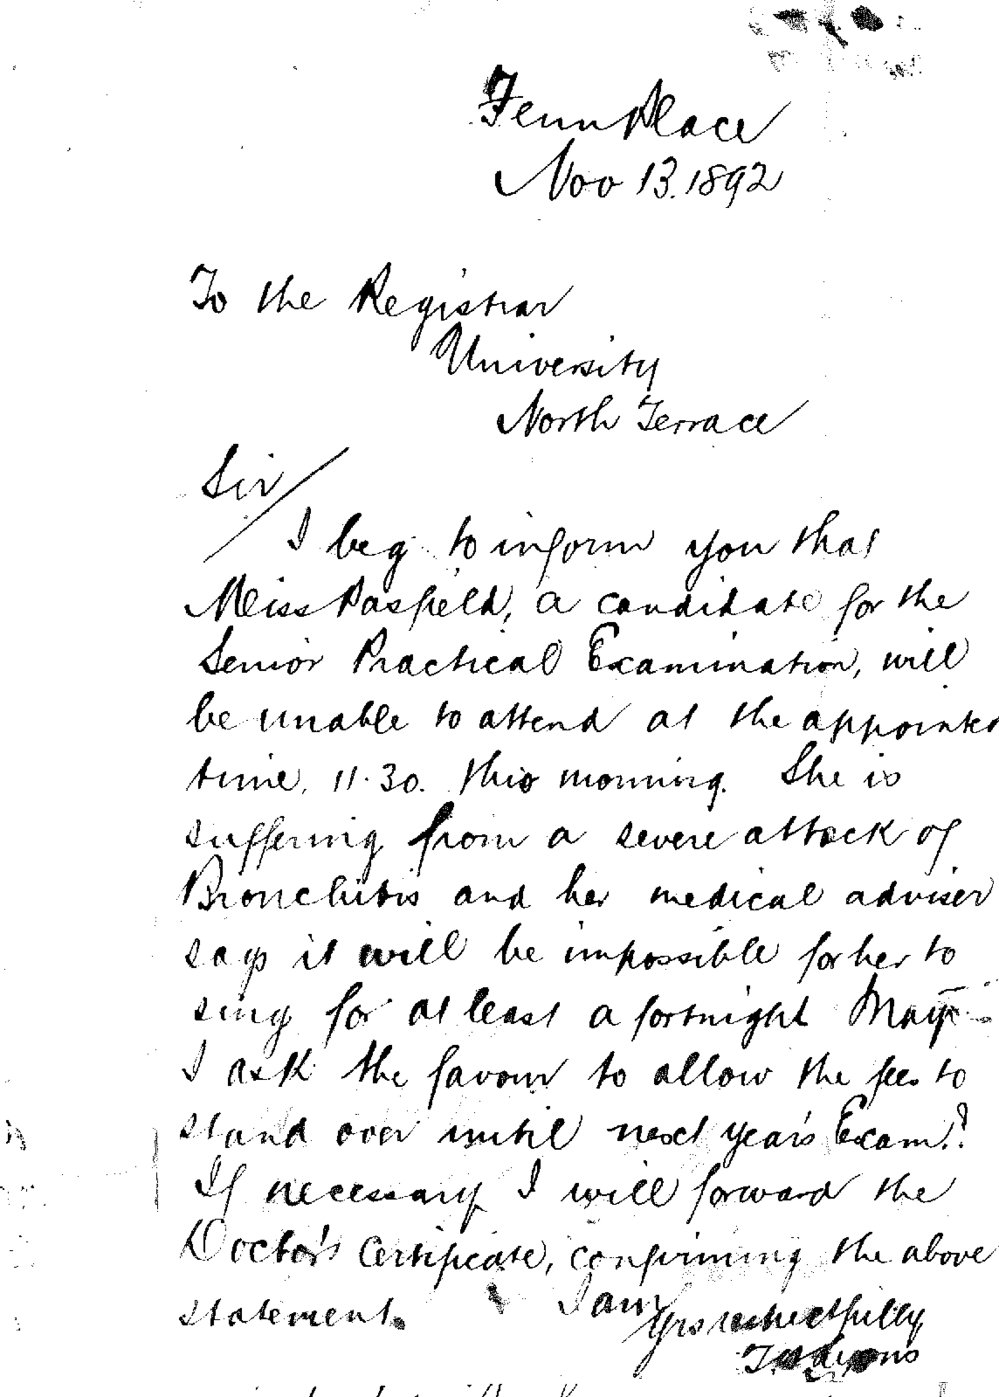 Fenn Place
Nov 13. 1892
To the Registrar
University
North Terrace
Sir/
I beg to inform you that
Miss Pasfield, a candidate for the
Senior Practical Examination, will
be unable to attend at the appointed
time, 11.30. this morning. She is
suffering from a severe attack of
Bronchitis and her medical adviser
says it will be impossible for her to
sing for at least a fortnight May
I ask the favour to allow the fee to
stand over until next year's Exam.?
If necessary I will forward the
Doctor's Certificate, confirming the above
statement.
I am
Yrs respectfully